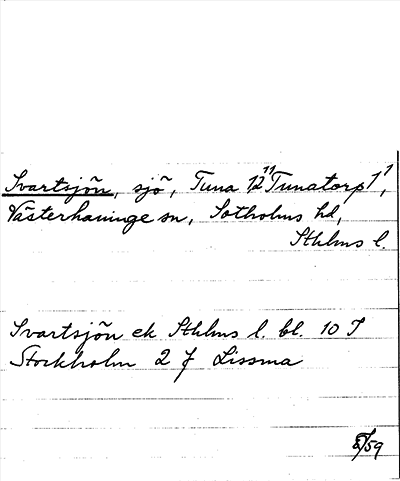 Svartsjön, sjö, Tuna 12¹¹ Tunatorp 1¹,
Västerhaninge sn, Sotholms hd,
Sthlms l.
Svartsjön ek Sthlms l. bl. 10 I
Stockholm 2 f Lissma
/59